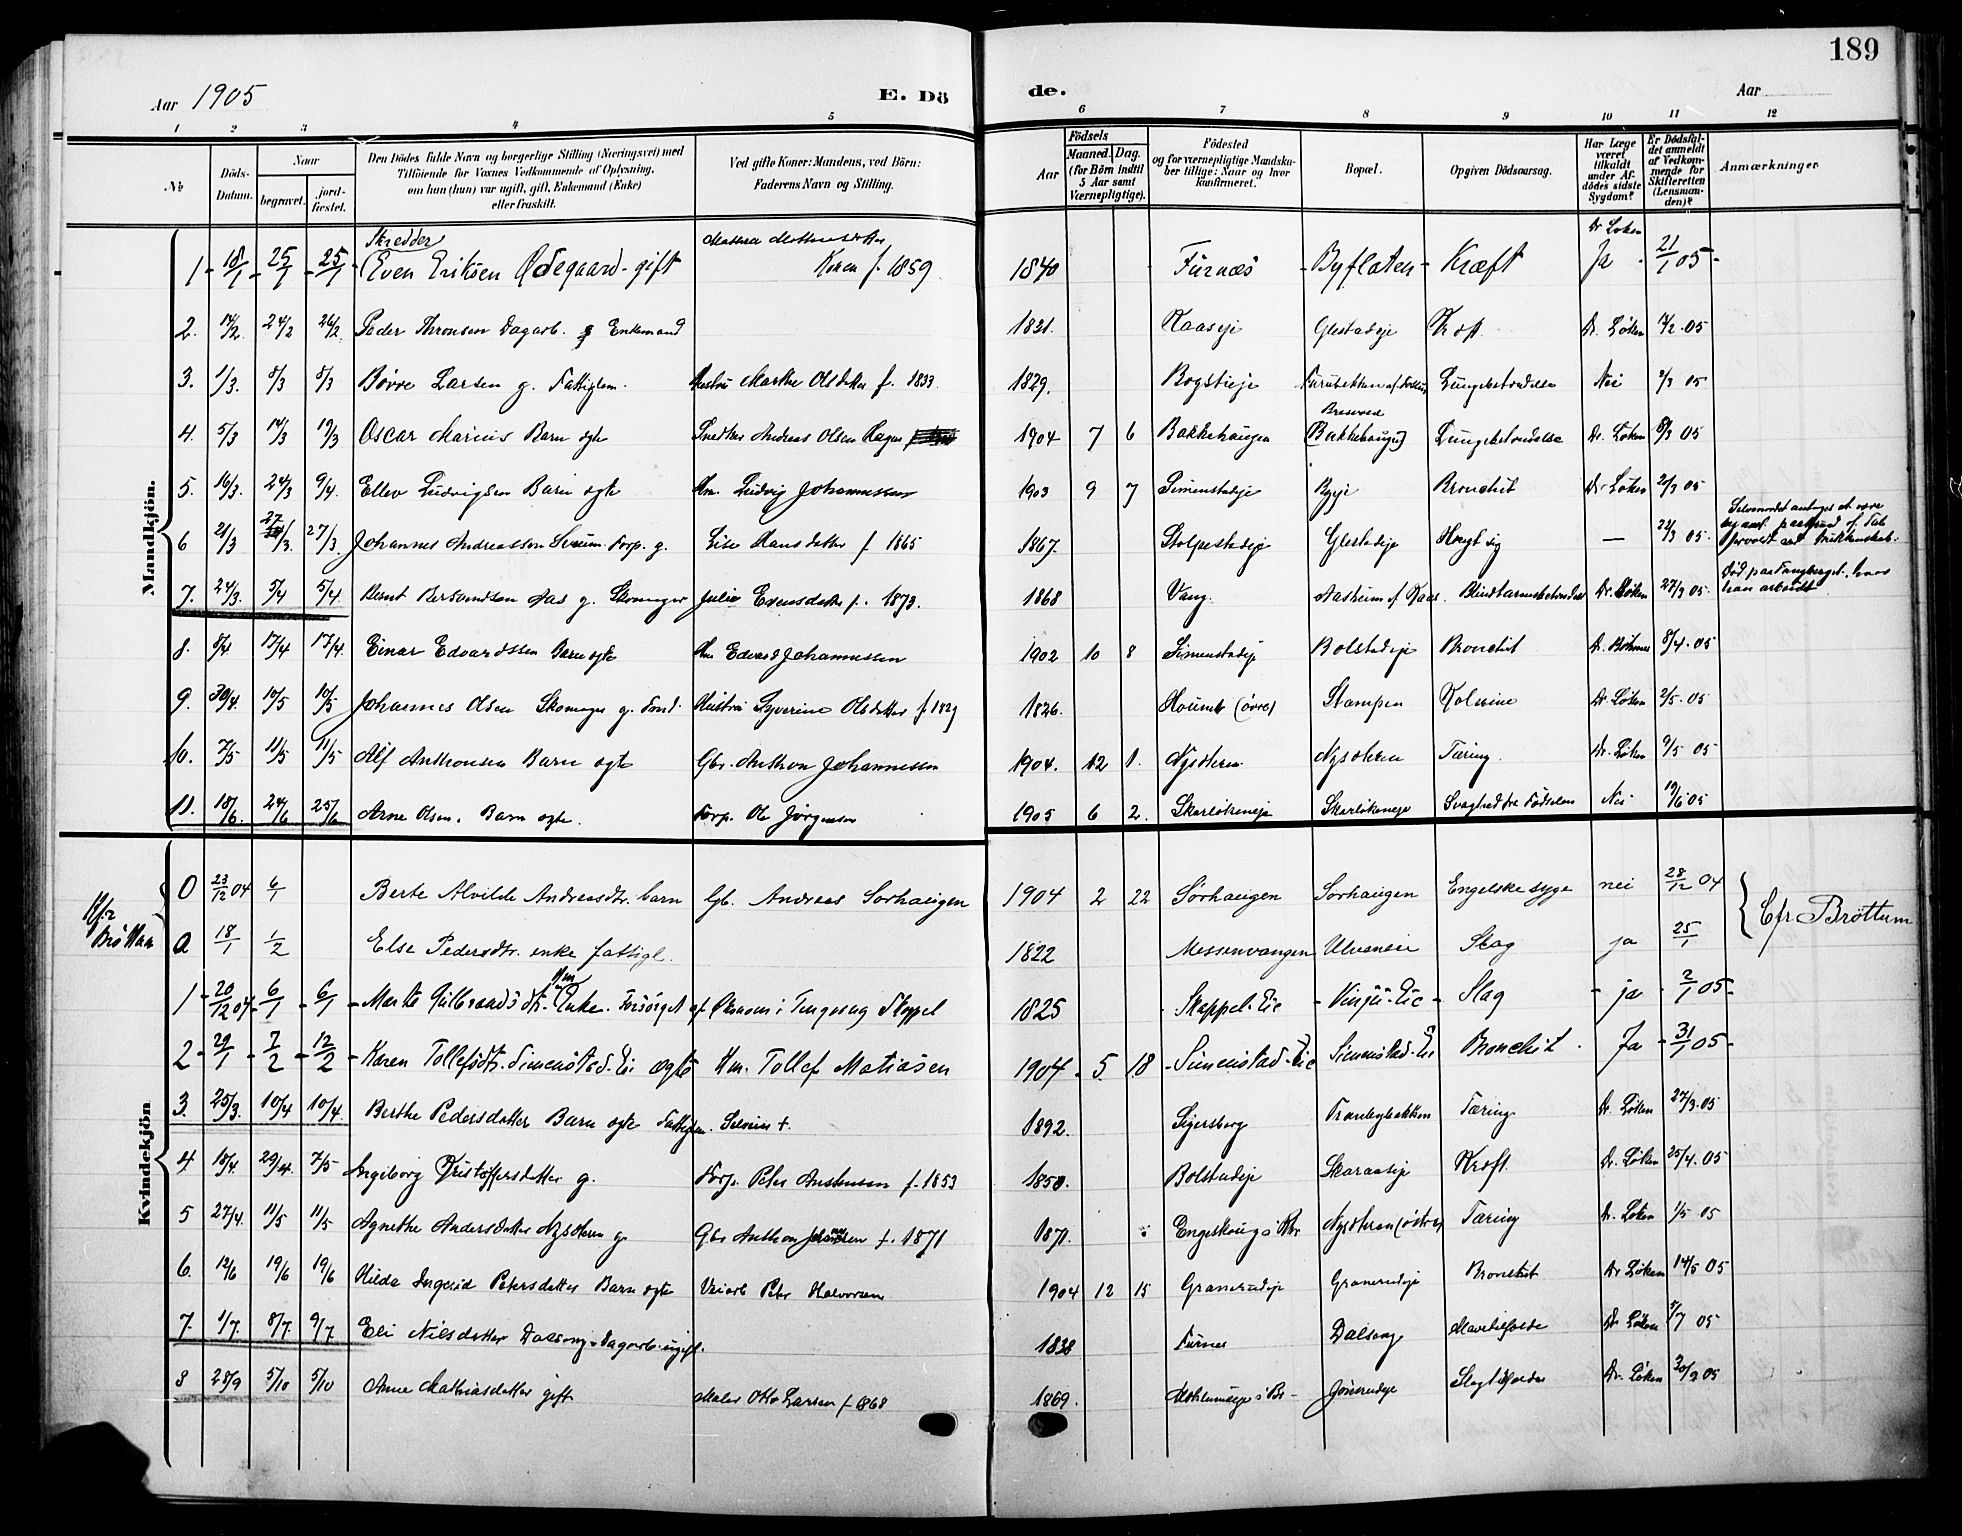 189
Aar 1905
E. Dö
de.
Aar
1 2 3 4 5 6 7 8 9 10 11 12
No
Döds-Datum.
Naar
begravet.
jord-fæstet.
Den Dödes fulde Navn og borgerlige Stilling (Næringsvei) med
Tilföiende for Voxnes Vedkommende af Oplysning,
om han (hun) var ugift, gift, Enkemand (Enke)
eller fraskilt.
Ved gifte Koner: Mandens, ved Börn:
Faderens Navn og Stilling.
Födsels
Aar
Maaned. Dag.
(for Börn indtil
5 Aar samt
Værnepligtige).
Födested
og for værnepligtige Mandska-
ber tillige: Naar og hvor
konfirmeret.
Bopæl.
Opgiven Dödsaarsag.
Har Læge
været
tilkaldt
under Af-
dödes sidste
Sygdom?
Er Dödsfal-
det anmeldt
af Vedkom-
mende for
Skifteretten
(Lensman-
den)?
Anmærkninger
Mandkjön.
1 18/1 25/1 25/1 Skredder Even Eriksen Ødegaard - gift Koner f. 1859 1840 Furnæs Byflaten Kræft Dr Løken Ja 21/1 05
2. 14/2 24/2 26/2 Peder Thronsen Dagarb. Enkemand 1821. Kaaseje Glestadeje Kræft Dr. Løken 05
3. 1/3. 8/3 8/3 Børre Larsen g. Fattiglem. Hustru Marthe Olsdatter f. 1833 1829. Bogstieje Lungebetændelse Nei 2/3 05
4. 5/3 14/3 19/3 Oscar Marius Barn ægte Snedker Andreas Olsen 1904 7 6 Bakkehaugen (Bakkehaugen) Lungebetændelse Dr. Løken 8/3 05
5. 16/3. 24/3 9/4. Ellev Ludvigsen Barn ægte Hm. Ludvig Johannessen 1903 9 7 Simenstadeje Byeje Bronchit Dr Løken 21/3 05
6 21/3 27/3. 27/3. Johannes Andreassen Forp. g. Lise Hansdatter f 1865 1867. Stolpestadeje Glestadeje Hengt sig — 22/3 05.
7. 24/3. 5/4 5/4 Bernt g. Skomager Julie Evensdatter f. 1873. 1868 Vang. Aasheim af Kaas. Blindtarmsbetændelse Dr. Løken 27/3 05.
8. 8/4. 17/4 17/4. Einar Edvardssen Barn ægte Hm Edvard Johannessen 1902 10 8 Simenstadeje Bolstadeje Bronchit 8/4. 05
9. 30/4. 10/5 10/5 Johannes Olsen Skomager g. Hustru Syverine Olsdatter f 1829 1826. (øvre) Stampen Dr. Løken 2/5. 05
10. 7/5 11/5 11/5 Alf Anthonsen Barn ægte Gbr. Anthon Johannessen 1904. 12 1. Nysæteren Nysæteren Tæring. Dr. Løken 9/5 05
11. 18/6. 24/6 25/6 Arne Olsen. Barn ægte. Forp. Ole Jørgensen 1905 6 2. Svaghed fra Fødselen Nei 19/6 05
Kvindekjön
0 23/12 04 6/1 Berte Alvilde Andreasdtr. barn Gb. Andreas Sørhaugen 1904 2 22 Sørhaugen Sørhaugen Engelske syge nei 28/12 04 Cfr Brøttum
a 18/1 1/2 Else Pedersdtr. enke fattigl. 1822 Messenvangen Ulvaneie Slag ja 25/1
1 20/12 04 6/1 6/1 Marte Gulbrandsdtr. Enke. Forsørget af 1825 Skappel-Eie Slag ja 2/1 05
2 29/1 7/2 12/2 Karen Tollefsdtr. Simenstad-Ei ægte Hm. Tollef Matiasen 1904 5 18 Simenstad-Eie Simenstad-Eie Bronchit Ja 31/1 05
3. 25/3. 10/4 10/4 Berthe Pedersdatter Barn ægte 1892. Sigersberg Tranbybakken Tæring Dr. Løken 27/3. 05
4 18/4. 29/4. 7/5 Ingeborg Kristoffersdatter g. Forp. Peter f. 1853 1850. Bolstadeje Skaraaseje Kræft. Dr. Løken 25/4. 05
5 27/4. 11/5 11/5 Agnethe Andersdatter Nysæteren g. Gbr Anthon Johannesen f. 1871 1871. Nysæteren (østre) Tæring Dr. Løken 1/5 05
6. 12/6 19/6 19/6 Hilda Ingerid Petersdatter Barn ægte Veiarb Peter Halvorsen 1904 12 15 Granerudeje Granerudeje Bronchit Dr Løken 05
7. 1/7. 8/7. 9/7 Eli Nilsdatter Dalseng - Dagarb. ugift. 1838 Furnes Dalseng Dr. Løken 5/7 05
8 28/9 5/10 5/10 Anne Mathiasdatter gift Maler Otto Larsen f 1868 1869. Dr. Løken 30/9 05